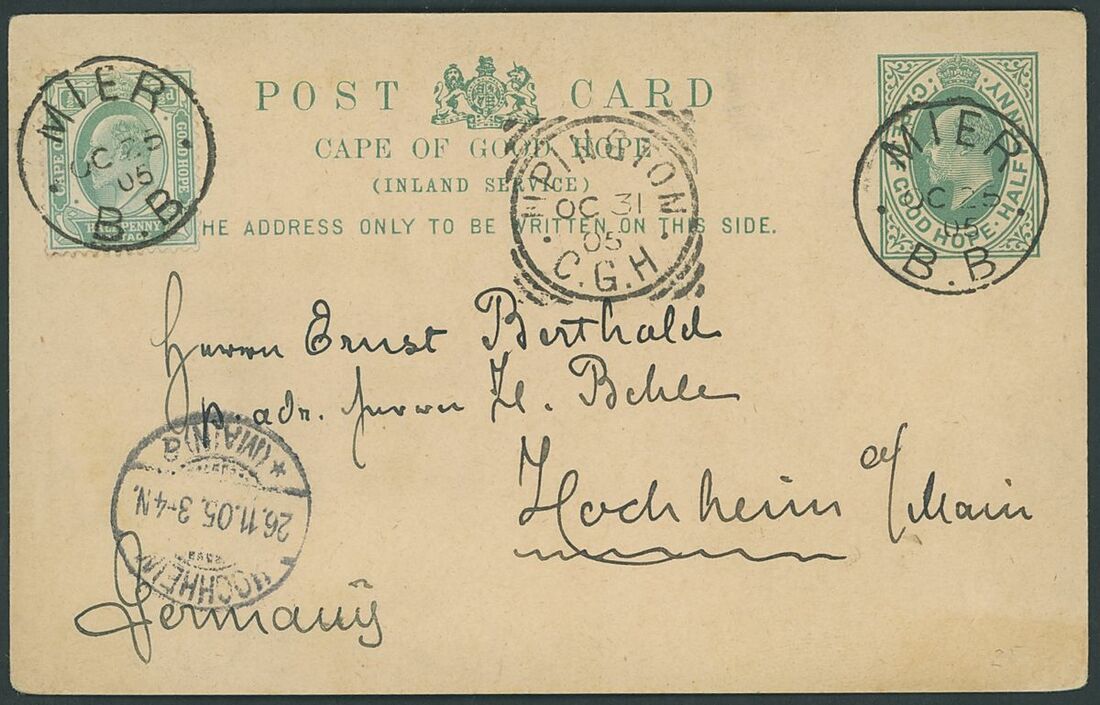 POST CARD
CAPE OF GOOD HOPE
(INLAND SERVICE)
THE ADDRESS ONLY TO BE WRITTEN ON THIS SIDE.
MIER
OC 25
05
B.B
HALF PENNY
GOOD HOPE
UPINGTON
OC 31
05
C.G.H
MIER
OC 25
05
B.B
GOOD HOPE. HALF PENNY
Herrn Ernst Berthold
p. adr. Herrn H. Behle
Hochheim a/ Main
HOCHHEIM
26.11.05. 3-4N.
(MAIN) a
Germany